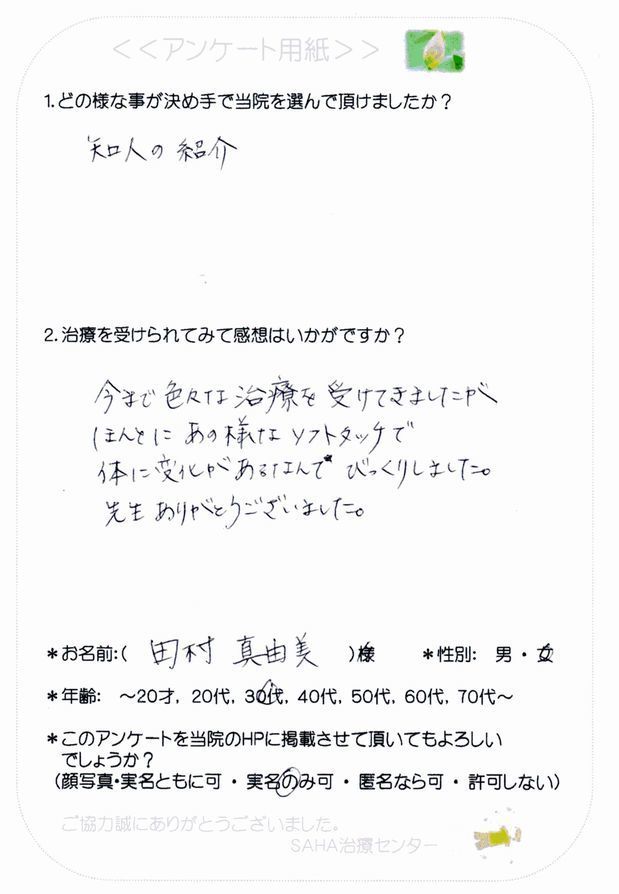 <<アンケート用紙>>
1.どの様な事が決め手で当院を選んで頂けましたか?
知人の紹介
2.治療を受けられてみて感想はいかがですか?
今まで色々な治療を受けてきましたが
ほんとにあの様なソフトタッチで
体に変化があるなんて びっくりしました。
先生ありがとうございました。
*お名前:( 田村 真由美 )様 *性別: 男・女
*年齢: ～20才, 20代, 30代, 40代, 50代, 60代, 70代～
*このアンケートを当院のHPに掲載させて頂いてもよろしい
でしょうか?
(顔写真・実名ともに可 ・ 実名のみ可 ・ 匿名なら可 ・ 許可しない)
ご協力誠にありがとうございました。
SAHA治療センター